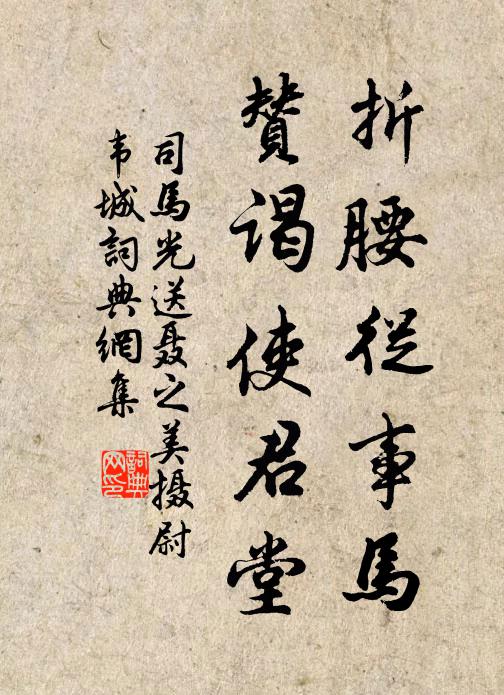 折腰從事馬
贊謁使君堂
司馬光送聂之美摄尉
韦城詞典網集
詞典网印